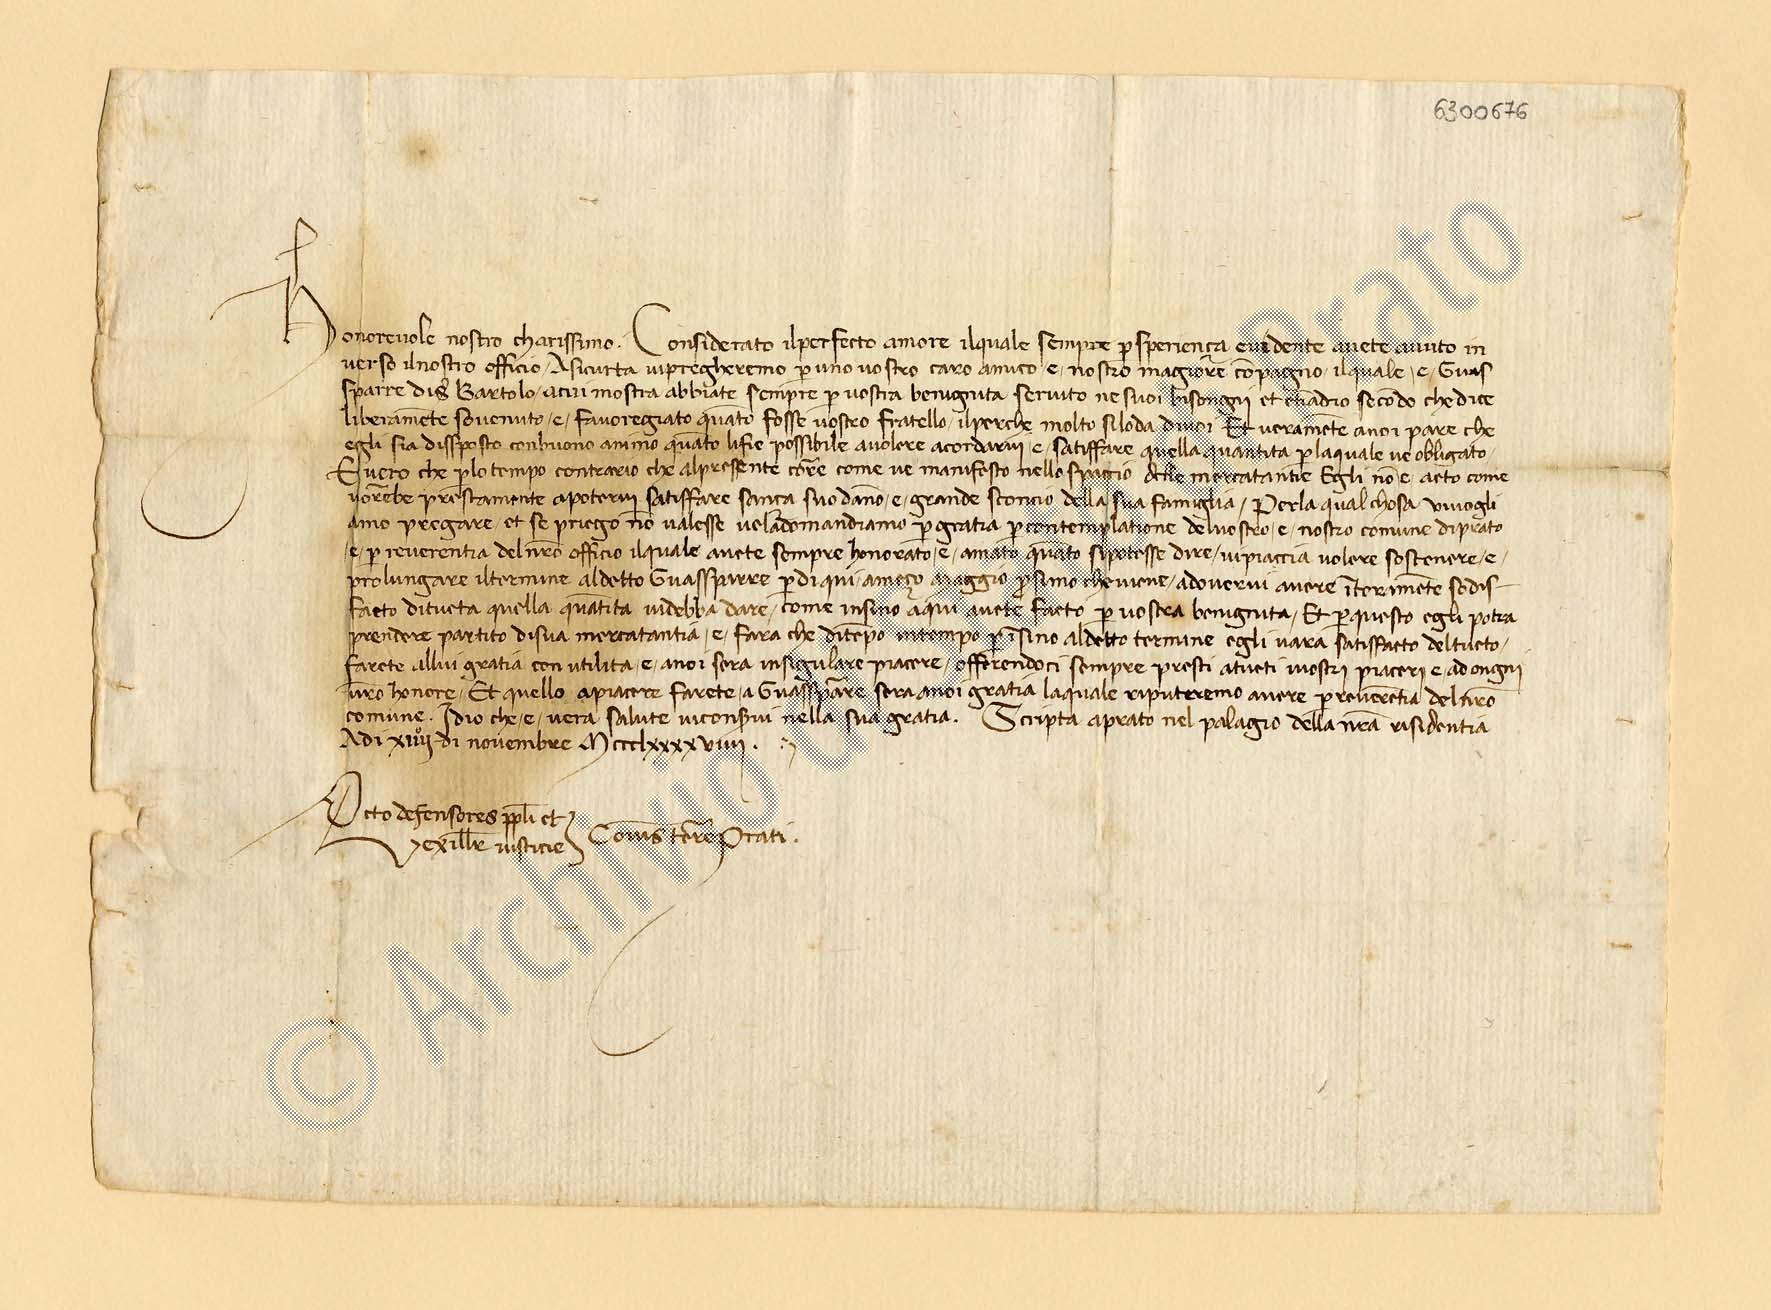 6300676
Honorevole nostro charissimo. Considerato ilperfecto amore ilquale sempre p sperienza evidente avete avuto in
verso ilnostro officio / Asicurta vipregheremo p uno vostro caro amico / e / nostro magiore cōpagno / ilquale / e / Guas
sparre di s Bartolo / acui mostra abbiate sempre p vostra benignita servito ne suoi bisongni et etiādio secōdo che dice
liberamēte sovenuto / e / favoregiato quāto fosse vostro fratello / ilperche molto siloda divoi Et veramēte anoi pare che
egli sia dissposto conbuono animo quāto lifie possibile avolere acordarvi / e / satisffare quella quantita p laquale ve obligato /
Evero che plo tempo contrario che alpressente corre come ve manifesto nello spaccio delle mercatantie Egli nō e acto come
vorrebe prestamente apotervi satisffare sanza suo dāno / e / grande sconcio della sua famiglia / Perla qual chosa vivogli
amo pregare / et se priego nō valesse vela domandiamo p gratia p contemplatione delvostro / e / nostro comune diprato
/ e / p reverentia del nrō officio ilquale avete sempre honorato / e / amato quāto sipotesse dire / vipiaccia volere sostenere / e /
prolungare iltermine aldetto Guassparre p di qui / amezo maggio p simo cheviene / adovervi avere īteramēte sodis
facto ditucta quella quātita videbba dare / come insino aqui avete facto p vostra benignita / Et p questo egli potra
prendere partito disua mercatantia / e / fara che ditēpo intempo p īsino aldetto termine egli vara satisffacto deltucto /
farete allui gratia con utilita / e / anoi sera insigulare piacere / offerendoci sempre presti atucti ivostri piaceri e / adongni
vrō honore / Et quello apiacere farete / a Guassparre sera anoi gratia laquale riputeremo avere p reverētia delnrō
comune. Idio che / e / vera salute viconservi nella sua gratia. Scripta aprato nel palagio della nrā risidentia
Adi di novembre Mccclxxxxviiij.
Octo defensores ppli et
vexillr iusticie Comis terre Prati.
© Archivio di Prato